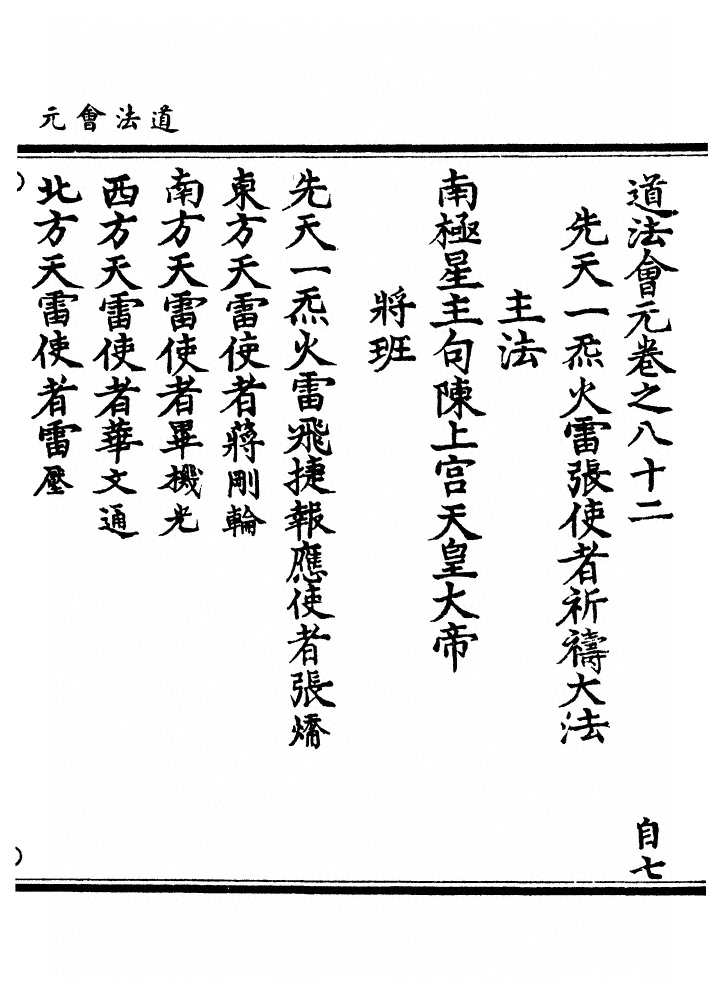 道法會元
道法會元卷之八十二 自七
先天一炁火雷張使者祈禱大法
主法
南極星主句陳上宮天皇大帝
將班
先天一炁火雷飛捷報應使者張燏
東方天雷使者蔣剛輪
南方天雷使者畢機光
西方天雷使者華文通
北方天雷使者雷壓